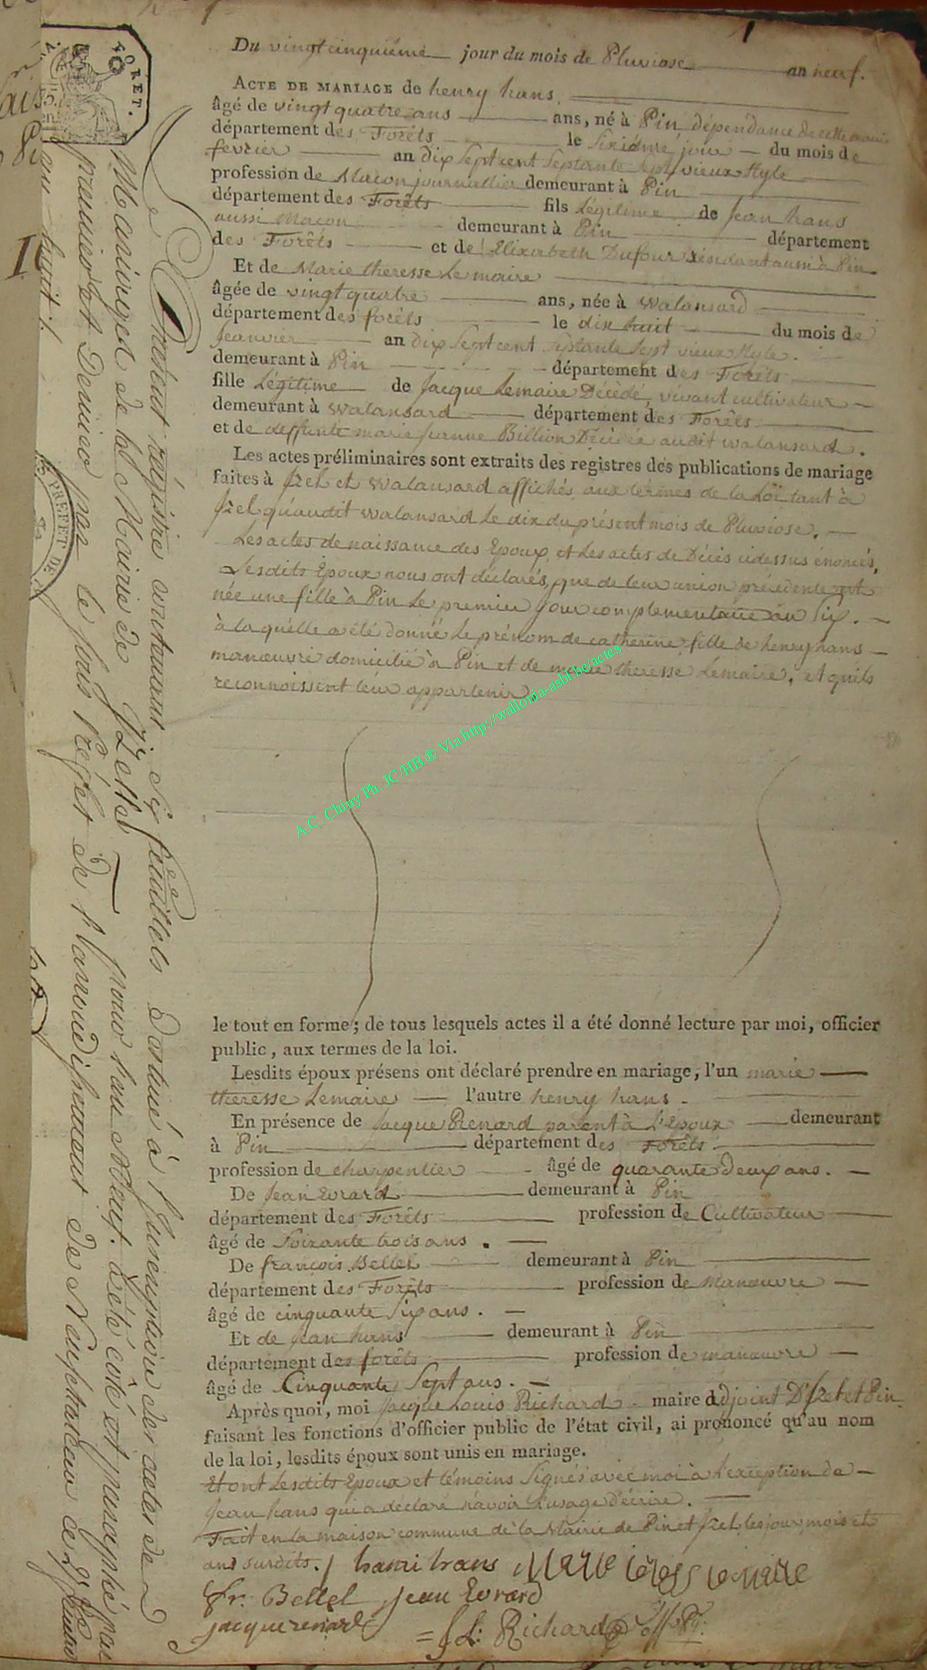 1
Du vingt cinquième jour du mois de Pluviose an neuf.
ACTE DE MARIAGE de henry hans
âgé de vingt quatre ans ans, né à Pin, dépendance de cette mairie
département des Forêts le Sixième jour du mois de
fevrier an dix Sept cent Septante Sept vieux Style
profession de Macon journallier demeurant à Pin
département des Forêts fils Légitime de Jean hans
aussi Macon demeurant à Pin département
des Forêts et de Elizabeth Dufour résidant aussi à Pin
Et de Marie theresse Lemaire
âgée de vingt quatre ans, née à Walansard
département des forêts le dix huit du mois de
Janvier an dix Sept cent Septante Sept vieux Style.
demeurant à Pin département des Forêts
fille Légitime de Jacque Lemaire Décédé, vivant cultivateur
demeurant à Walansard département des Forêts
et de deffunte marie Jeanne Billion Décédée audit Walansard.
Les actes préliminaires sont extraits des registres des publications de mariage
faites à Izel et Walansard affichés aux termes de la Loi tant à
Izel qu'audit Walansard Le dix du présent mois de Pluviose.
Les actes de naissance des Epoux, et Les actes de Décès cidessus énoncés,
Lesdits Epoux nous ont déclarés, que de leur union précédente est
née une fille à Pin Le premier jour complementaire an Six.
à laquelle a été donné Le prénom de catherine fille de henry hans
manœuvre domicilié à Pin et de marie theresse Lemaire, et qu'ils
reconnoissent leur appartenir
A.G. Chiny Ph. JC HB & Via http://wallonia-asbl.be/actes
le tout en forme; de tous lesquels actes il a été donné lecture par moi, officier
public, aux termes de la loi.
Lesdits époux présens ont déclaré prendre en mariage, l'un marie
theresse Lemaire l'autre henry hans.
En présence de Jacque Renard parent à L'Epoux demeurant
à Pin département des Forêts
profession de charpentier âgé de quarante deux ans.
De Jean Evrard demeurant à Pin
département des Forêts profession de Cultivateur
âgé de Soixante trois ans.
De françois Bellet demeurant à Pin
département des Forêts profession de Manœuvre
âgé de cinquante Six ans.
Et de Jean hans demeurant à Pin
département des forêts profession de manœuvre
âgé de Cinquante Sept ans.
Après quoi, moi Jacque Louis Richard maire adjoint D'Izel et Pin
faisant les fonctions d'officier public de l'état civil, ai prononcé qu'au nom
de la loi, lesdits époux sont unis en mariage.
Et ont Lesdits Epoux et témoins Signés avec moi à L'exception de
Jean hans qui a déclaré n'avoir L'usage d'écrire.
Fait en la maison commune de la Mairie de Pin et Izel, les jour mois et
ans susdits. hanri hans Marie teress Lemaire
Fr: Bellet Jean Evrard
jacque renard J L: Richard
FORET.
Le Présent régistre contenant Six feuillets Destiné à l'Inscription des actes de
Mariages de la Mairie de Izelle pour l'an Neuf. a été coté et paraphé par
premier et Dernier par le sous Préfet de l'arrondissement de Neufchateau ce
an huit.
PREFET DE